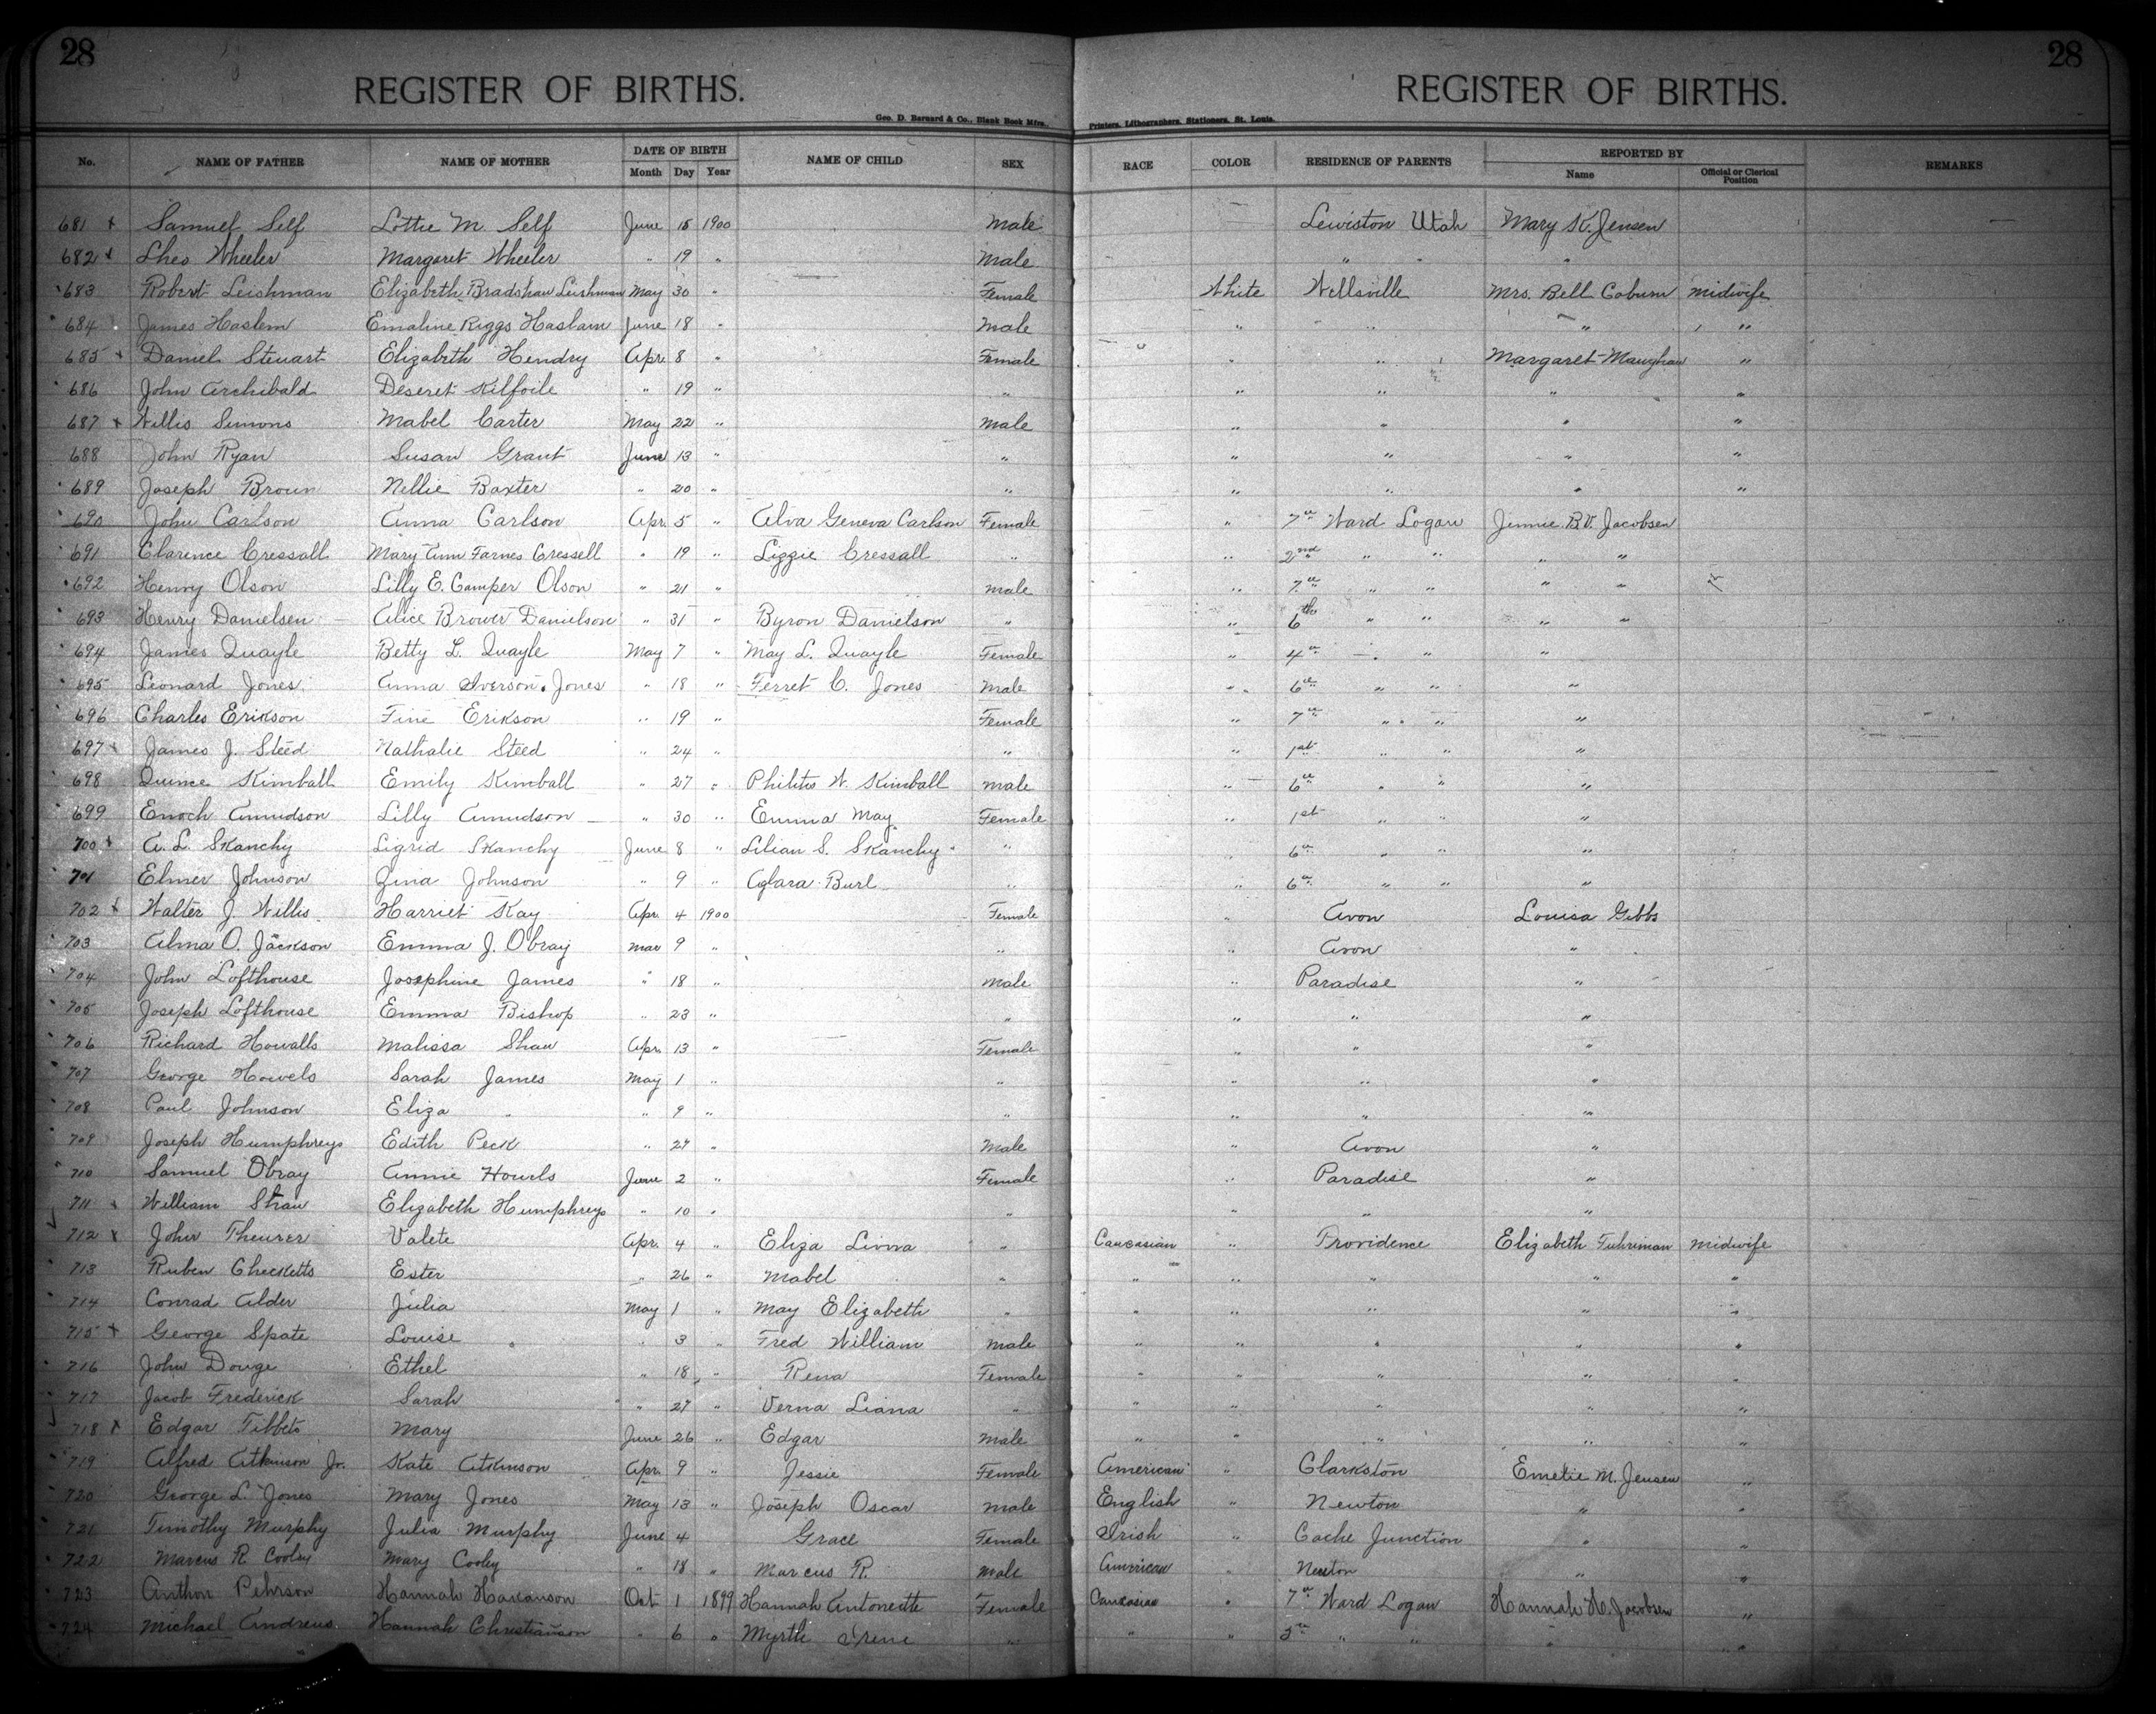 28 28
REGISTER OF BIRTHS. REGISTER OF BIRTHS.
Geo. D. Barnard & Co., Blank Book Mfrs., Printers, Lithographers, Stationers, St. Louis.
No. NAME OF FATHER NAME OF MOTHER DATE OF BIRTH NAME OF CHILD SEX RACE COLOR RESIDENCE OF PARENTS REPORTED BY REMARKS
Month Day Year Name Official or Clerical Position
681 x Samuel Self Lottie M. Self June 15 1900 Male Lewiston Utah Mary K. Jensen
682 x Theo Wheeler Margaret Wheeler " 19 " Male " " "
683 Robert Leishman Elizabeth Bradshaw Leishman May 30 " Female White Wellsville Mrs. Bell Coburn Midwife
684 James Haslem Emaline Riggs Haslam June 18 " Male " " " "
685 x Daniel Stewart Elizabeth Hendry Apr. 8 " Female " " Margaret Maughan "
686 John Archibald Deseret Kilfoile " 19 " " " " " "
687 x Willis Simons Mabel Carter May 22 " Male " " " "
688 John Ryan Susan Grant June 13 " " " " " "
689 Joseph Brown Nellie Baxter " 20 " " " " " "
690 John Carlson Anna Carlson Apr. 5 " Alva Geneva Carlson Female " 7th Ward Logan Jennie B.V. Jacobsen
691 Clarence Cressall Mary Ann Farnes Cressell " 19 " Lizzie Cressall " " 2nd " " " "
692 Henry Olson Lilly E. Camper Olson " 21 " Male " 7th " " " "
693 Henry Danielsen Alice Brower Danielson " 31 " Byron Danielson " " 6th " " " "
694 James Quayle Betty L. Quayle May 7 " May L. Quayle Female " 4th " " "
695 Leonard Jones Anna Iverson Jones " 18 " Ferret C. Jones Male " 6th " " "
696 Charles Erikson Tine Erikson " 19 " Female " 7th " " "
697 x James J. Steed Nathalie Steed " 24 " " " 1st " " "
698 Quince Kimball Emily Kimball " 27 " W. Kimball Male " 6th " " "
699 Enoch Amudson Lilly Amudson " 30 " Emma May Female " 1st " " "
700 x A. L. Skanchy Sigrid Skanchy June 8 " Lilian S. Skanchy " " 6th " " "
701 Elmer Johnson Zina Johnson " 9 " Burl " " 6th " " "
702 x Walter J. Willis Harriet Kay Apr. 4 1900 Female " Avon Louisa Gibbs
703 Alma O. Jackson Emma J. Obray Mar 9 " " " Avon "
704 John Lofthouse Josephine James " 18 " Male " Paradise "
705 Joseph Lofthouse Emma Bishop " 23 " " " " "
706 Richard Howalls Malissa Shaw Apr. 13 " Female " " "
707 George Howels Sarah James May 1 " " " " "
708 Paul Johnson Eliza " " 9 " " " " "
709 Joseph Humphreys Edith Peck " 27 " Male " Avon "
710 Samuel Obray Annie Howels June 2 " Female " Paradise "
711 x William Shaw Elizabeth Humphreys " 10 " " " " "
712 x John Theurer Valete Apr. 4 " Eliza Livna " Caucasian " Providence Elizabeth Fuhriman Midwife
713 Ruben Checketts Ester " 26 " Mabel " " " " " "
714 Conrad Alder Julia May 1 " May Elizabeth " " " " " "
715 x George Spate Louise " 3 " Fred William Male " " " " "
716 John Douge Ethel " 18 " Rena Female " " " " "
717 Jacob Frederick Sarah " 27 " Verna Liana " " " " " "
718 x Edgar Tibbets Mary June 26 " Edgar Male " " " " "
719 Alfred Atkinson Jr. Kate Atkinson Apr. 9 " Jessie Female American " Clarkston Emelie M. Jensen "
720 George L. Jones Mary Jones May 13 " Joseph Oscar Male English " Newton " "
721 Timothy Murphy Julia Murphy June 4 Grace Female Irish " Cache Junction " "
722 Marcus R. Cooley Mary Cooley " 18 " Marcus R. Male American " Newton " "
723 Anthon Pehrson Hannah Hakanson Oct 1 1899 Hannah Antonette Female Caucasian " 7th Ward Logan Hannah H. Jacobsen "
724 Michael Andreus Hannah Christianson " 6 " Myrtle Irene " " " 5th " " " "